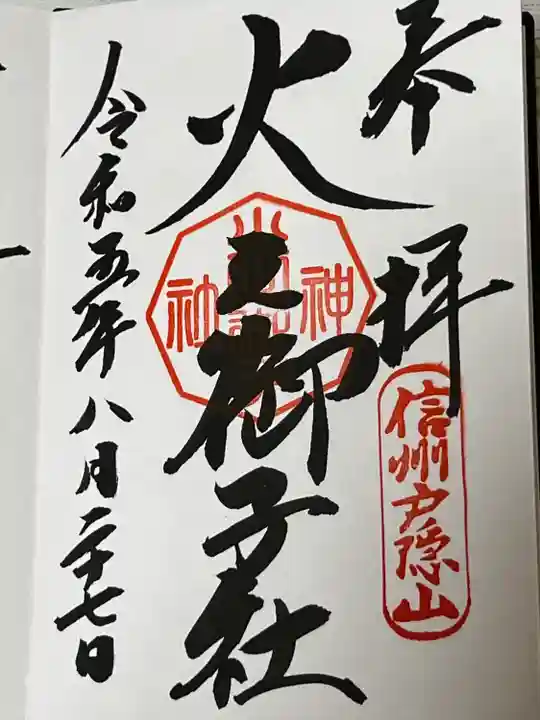 奉拝
信州戸隠山
火之御子社
神
社
令和五年八月二十七日